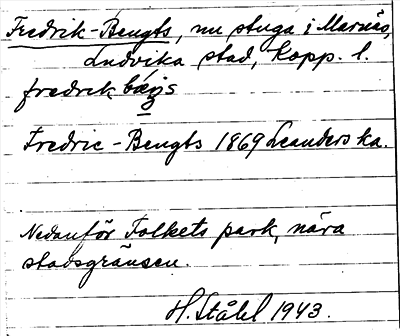 Fredrik-Bengts, nu stuga i Marnäs,
Ludvika stad, Kopp. l.
fredrek bæŋs
Fredric-Bengts 1869 Leanders ka.
Nedanför Folkets park, nära
stadsgränsen.
H. Ståhl 1943.